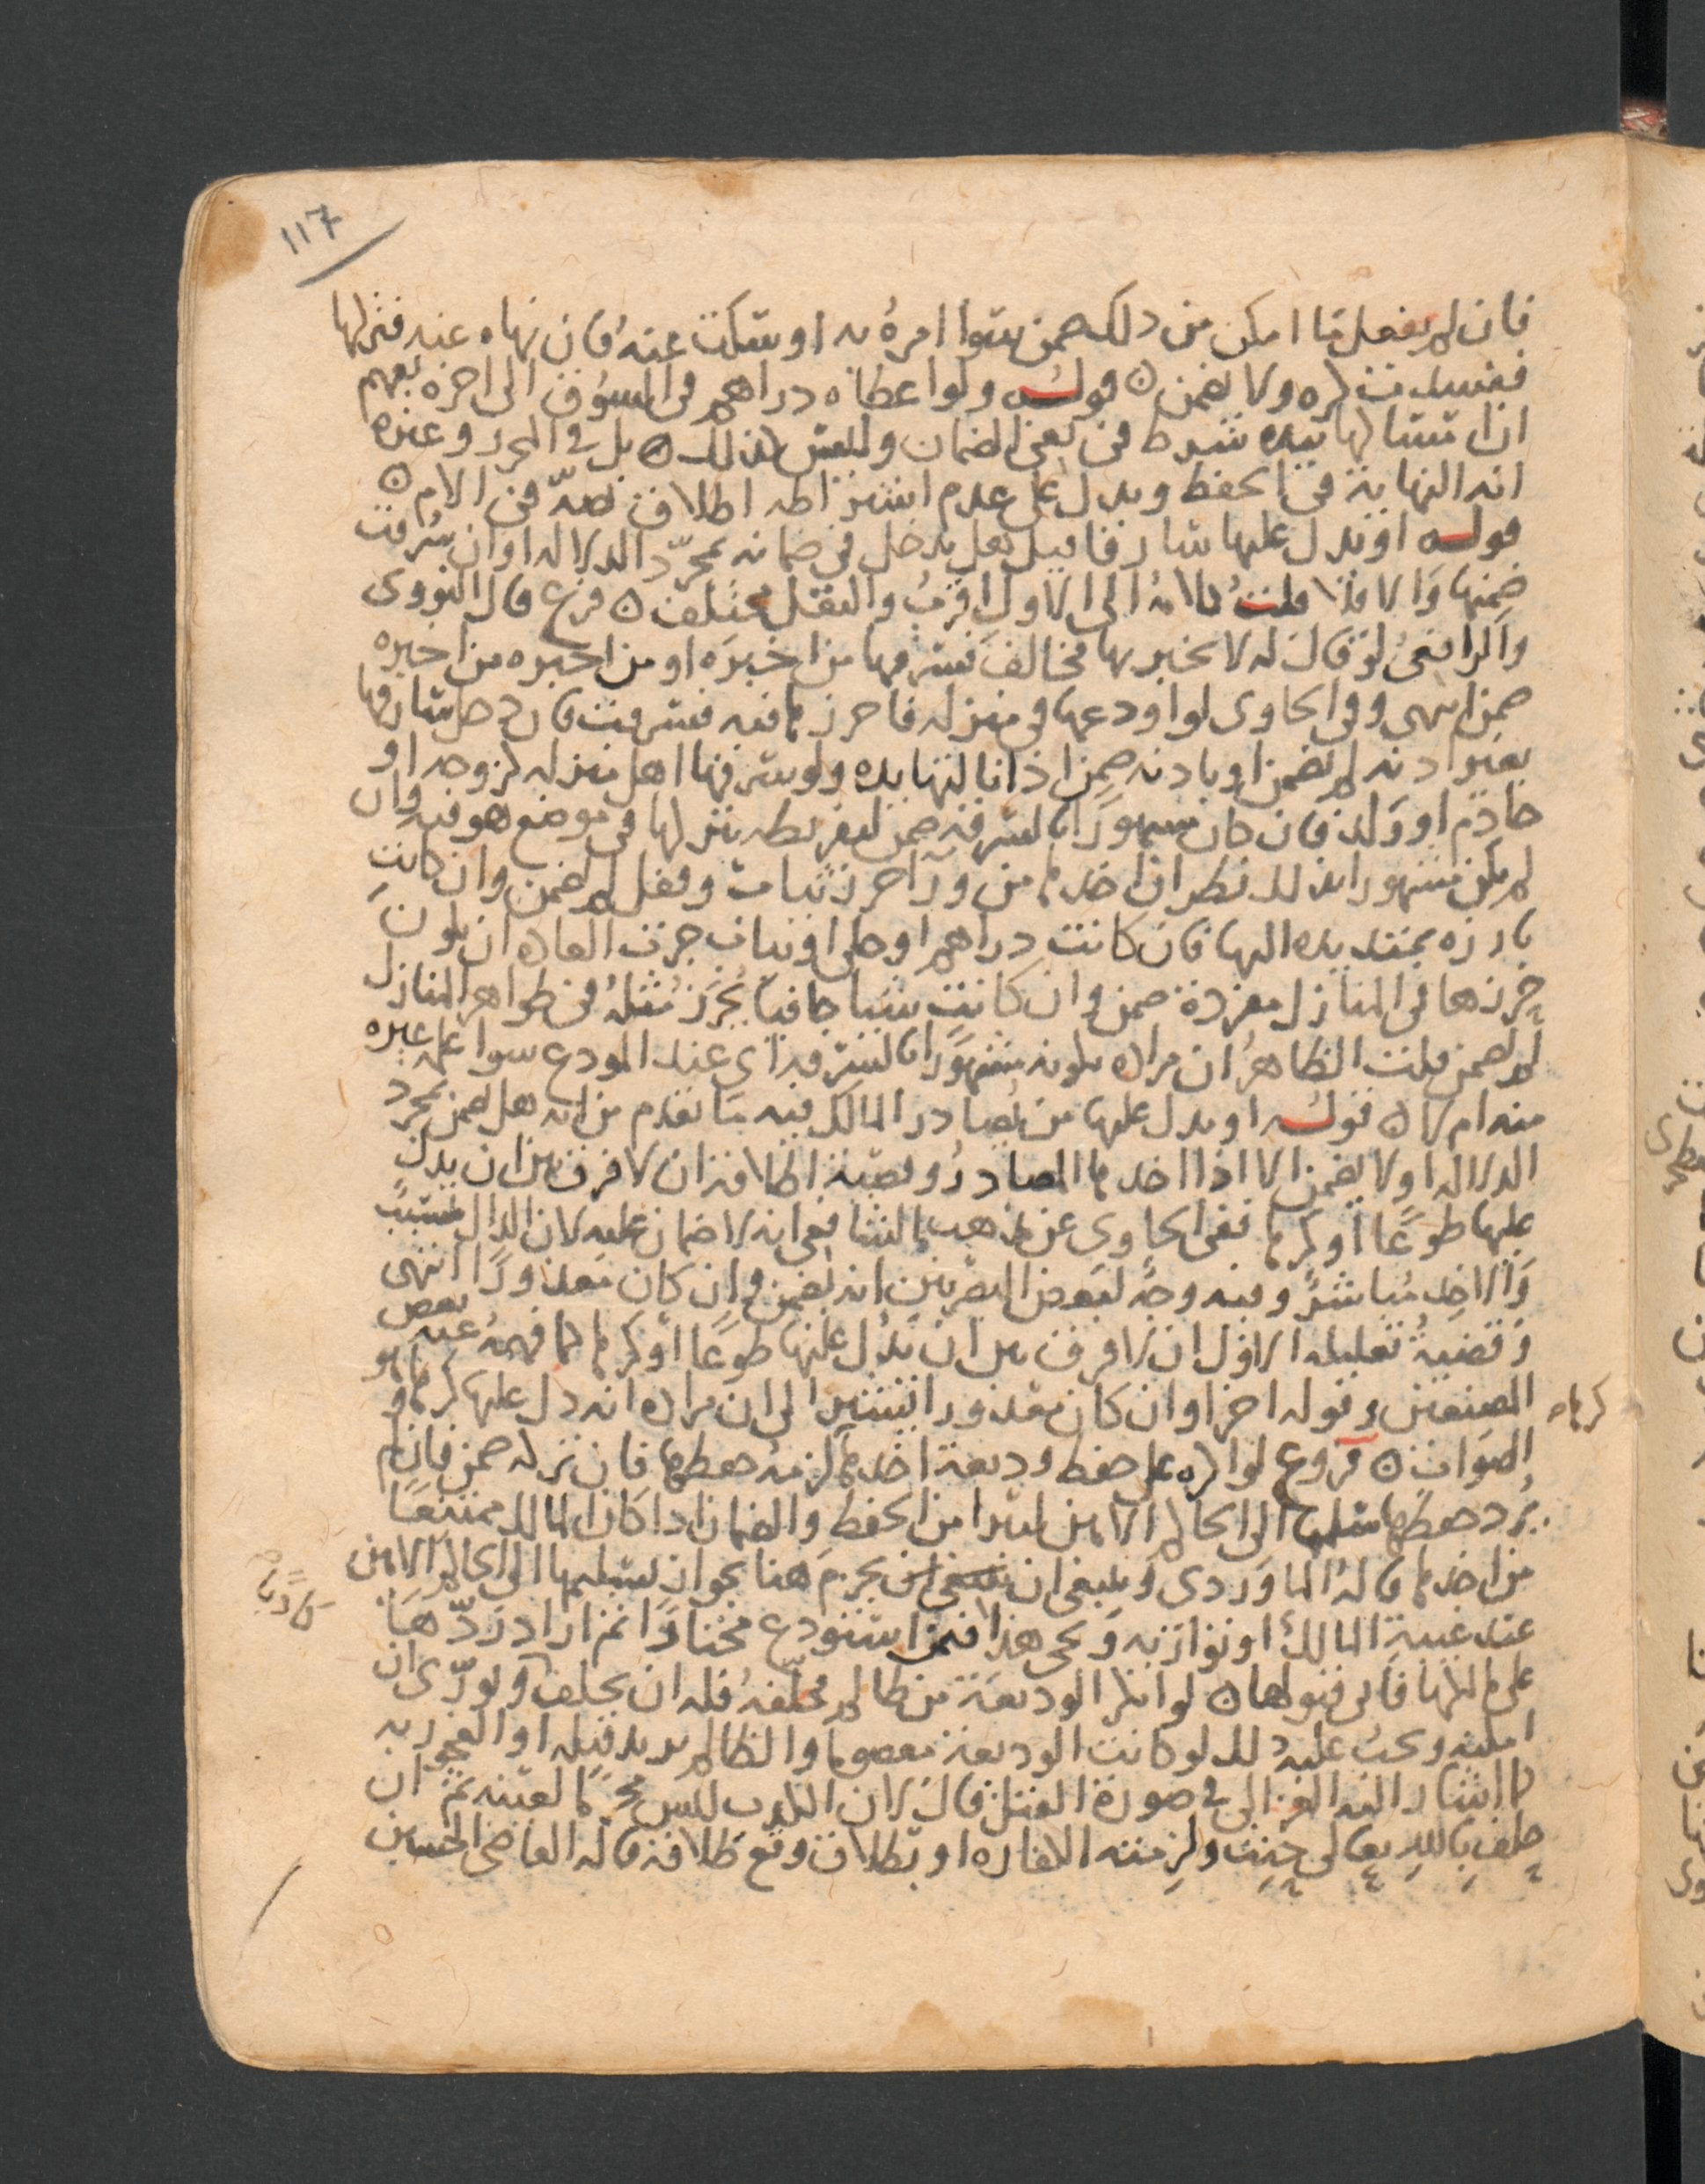 ١١٧
فان لم يفعل ما امكن من ذلك ضمن سوا امره به او سكت عنه فان نهاه عنه فتركها
ففسدت كره ولا يضمن ٥ قوله ولو اعطاه دراهم في السوق الى اخره يفهم
ان امساكها بيده شرط في نفي الضمان وليس كذلك ٥ بل في المحرر وغيره
انه النهاية في الحفظ ويدل على عدم اشتراطه اطلاق نصه في الام ٥
قوله او يدل عليها سارقا قيل هل يدخل في ضمانه بمجرد الدلاله او ان سرقت
ضمنها والا فلا قلت كلامه الى الاول اقرب والنقل مختلف ٥ فرع قال النووي
والرافعي لو قال له لا تخبر بها فخالف فسرقها من اخبره او من اخبره من اخبره
ضمن انتهى وفي الحاوي لو اودعها في منزله فاحرزها فيه فسرقت فان دخل سارقها
بغير اذنه لم يضمن او باذنه ضمن اذا نالتها يده ولو سرقها اهل منزله كزوجه او
خادم او ولد فان كان مشهورا بالسرقه ضمن لتفريطه بتركها في موضع هو فيه وان
لم يكن مشهورا بذلك نظر ان اخذها من ورآ حرز كباب وقفل لم يضمن وان كانت
بارزه تمتد يده اليها فان كانت دراهم او حلى او ثياب جرت العاده ان يكون
حرزها في المنازل مفردة ضمن وان كانت شيا جافيا يحرز مثله في ظواهر المنازل
لم يضمن قلت الظاهر ان مراده بكونه مشهورا بالسرقه اي عند المودع سوا علمه غيره
منه ام لا ٥ قوله او يدل عليها من يصادر المالك فيه ما تقدم من انه هل يضمن بمجرد
الدلاله او لا يضمن الا اذا اخذها المصادر وقضية اطلاقه ان لا فرق بين ان يدل
عليها طوعا او كرها ففي الحاوي عن مذهب الشافعي انه لا ضمان عليه لان الدال متسبب
والاخذ مباشر وفيه وجه لبعض البصريين انه يضمن وان كان معذورا انتهى
وقضية تعليله الاول ان لا فرق بين ان يدل عليها طوعا او كرها كما فهمه عنه بعض
المصنفين وقوله اخرا وان كان معذورا يشير الى ان مراده انه دل عليها كرها وهو
كرها
الصواب ٥ فروع لو اكره على حفظ وديعة اخذها لزمه حفظها فان تركه ضمن فان لم
يرد حفظها سلمها الى الحاكم الامين ليبرا من الحفظ والضمان اذا كان المالك ممتنعا
من اخذها قاله الماوردي وينبغي ان يجزم هنا بجواز تسليمها الى الحاكم الامين
عند غيبة المالك او تواريه ويجي هذا فيمن استودع مختارا ثم اراد ردها
على مالكها فابى قبولها ٥ لو انكر الوديعة من ظالم فحلفه فله ان يحلف ويورى ان
امكنه ويجب عليه ذلك لو كانت الوديعة معصوما والظالم يريد قتله او الفجور به
كما اشار اليه الغزالي في صورة القتل قال لان الكذب ليس محرما لعينه ثم ان
حلف بالله تعالى حنث ولزمته الكفاره او بطلاق وقع طلاقه قاله القاضي الحسين